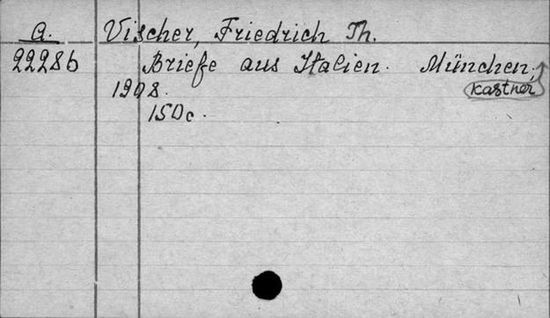 a. Vischer, Friedrich Th.
22286 Briefe aus Italien. München;
kastner
1908.
150c.